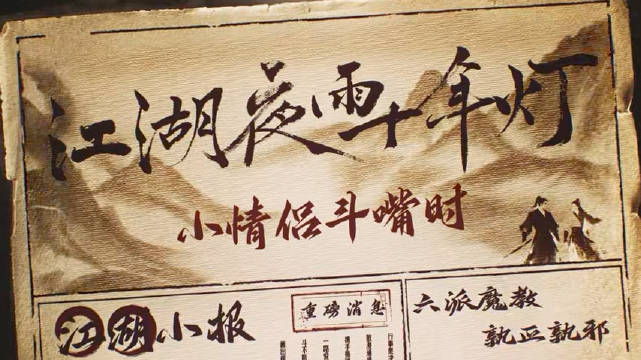 江湖夜雨十年灯
小情侣斗嘴时
江湖小报
重磅消息
六派魔教
孰正孰邪